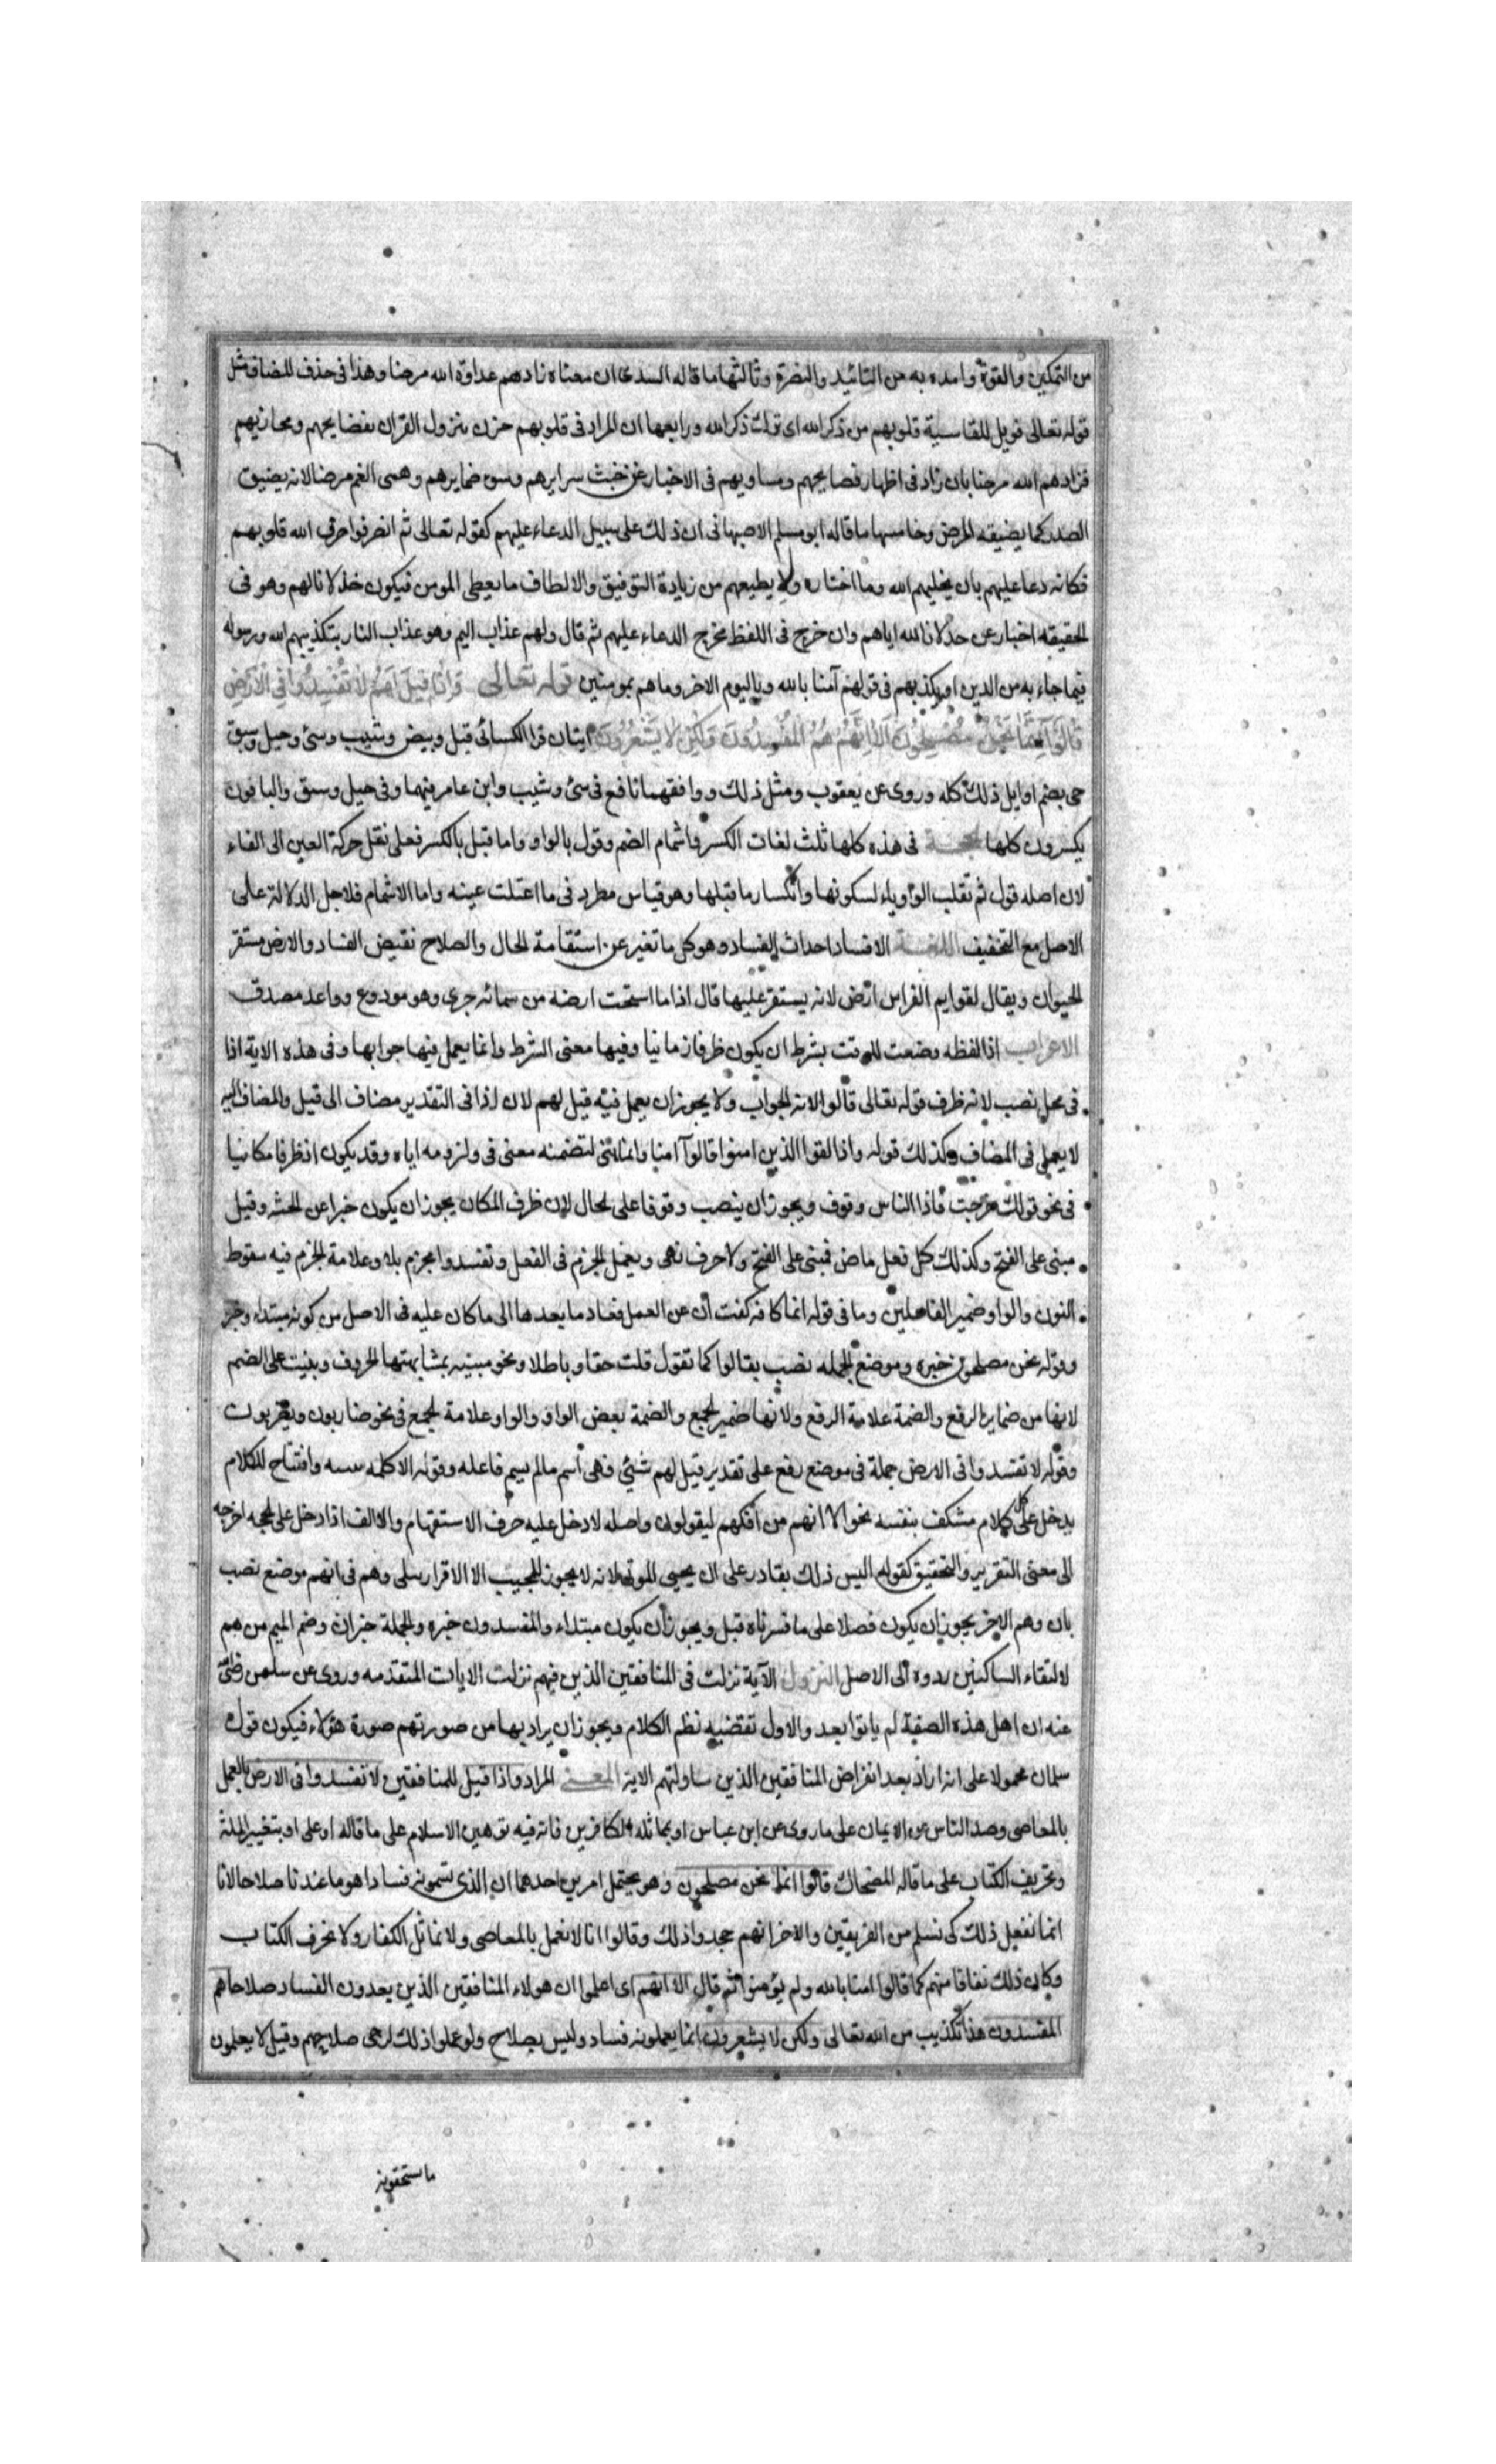 من التمكين والقوة وامده به من التائيد والنصرة وثالثها ما قاله السدى ان معناه زادهم عداوة الله مرضا وهذا فى حذف المضاف مثل
قوله تعالى فويل للقاسية قلوبهم من ذكر الله اى ترك ذكر الله ورابعها ان المراد فى قلوبهم حزن بنزول القران بفضايحهم ومخازيهم
فزادهم الله مرضا بان زاد فى اظهار فضايحهم ومساويهم فى الاخبار عن خبث سرايرهم وسوء ضمايرهم وهمى الغم مرضا لانه يضيق
الصدر كما يضيقه المرض وخامسها ما قاله ابو مسلم الاصبهانى ان ذلك على سبيل الدعاء عليهم كقوله تعالى ثم انصرفوا صرف الله قلوبهم
فكانه دعا عليهم بان يخليهم الله وما اختاره ولا يطيعهم من زيادة التوفيق والالطاف ما يعطى المومن فيكون خذلانا لهم وهو فى
الحقيقه اخبار عن خذلان الله اياهم وان خرج فى اللفظ مخرج الدعاء عليهم ثم قال ولهم عذاب اليم وهو عذاب النار بتكذيبهم الله ورسوله
فيما جاء به من الدين او بكذبهم فى قولهم آمنا بالله وباليوم الاخر وما هم بمومنين قوله تعالى وَاِذَا قِيلَ لَهُمْ لَا تُفْسِدُوا فِي الْاَرْضِ
قَالُوا اِنَّمَا نَحْنُ مُصْلِحُونَ اَلَا اِنَّهُمْ هُمُ الْمُفْسِدُونَ وَلٰكِنْ لَا يَشْعُرُونَ ايتان قرا الكسائى قيل وغيض وسيىء وسيق وحيل وسيق
جى بضم اوايل ذلك كله وروى عن يعقوب ومثل ذلك ووافقهما نافع فى سئ وشيب وابن عامر فيهما وفى حيل وسيق والباقون
يكسرون كلها الحجة فى هذه كلها ثلث لغات الكسر واشمام الضم وقول بالواو واما قيل بالكسر فعلى نقل حركة العين الى الفاء
لان اصله قول ثم تقلب الواو ياء لسكونها وانكسار ما قبلها وهو قياس مطرد فى ما اعتلت عينه واما الاشمام فلاجل الدلالة على
الاصل مع التخفيف اللغة الافساد احداث الفساد وهو كل ما تغير عن استقامة الحال والصلاح نقيض الفساد والارض مستقر
الحيوان ويقال لقوايم الفراس ارض لانه يستقر عليها قال اذا ما استحمت ارضه من سمائه جرى وهو مودوع وواعد مصدق
الاعراب اذا لفظه وضعت للوقت بشرط ان يكون ظرفا زمانيا وفيها معنى الشرط وانما يعمل فيها جوابها وفى هذه الاية اذا
فى محل نصب لانه ظرف قوله تعالى قالوا لانه الجواب ولا يجوز ان يعمل فيه قيل لهم لان اذا فى التقدير مضاف الى قيل والمضاف اليه
لا يعمل فى المضاف وكذلك قوله واذا لقوا الذين امنوا قالوا آمنا وانما بنى لتضمنه معنى فى ولزومه اياه وقد يكون اذ ظرفا مكانيا
فى نحو قولك خرجت فاذا الناس وقوف ويجوز ان ينصب وقوفا على الحال لان ظرف المكان يجوز ان يكون خبرا عن الجثه وقيل
مبنى على الفتح وكذلك كل فعل ماض فمبنى على الفتح ولا حرف نهى ويعمل الجزم فى الفعل وتفسدوا مجزم بلا وعلامة الجزم فيه سقوط
النون والواو ضمير الفاعلين وما فى قوله انما كافه كفت ان عن العمل فعاد ما بعدها الى ما كان عليه فى الاصل من كونه مبتداء وخبر
وقوله نحن مصلحون خبره وموضع الجمله نصب بقالوا كما تقول قلت حقا وباطلا ونحو مبنيه بمشابهتها الحروف وبنيت على الضم
لانها من ضماير الرفع والضمة علامة الرفع ولانها ضمير الجمع والضمة بعض الواو والواو علامة الجمع فى نحو ضاربون ويضربون
وقوله لا تفسدوا فى الارض جملة فى موضع رفع على تقدير قيل لهم شئ فهى اسم ما لم يسم فاعله وقوله الا كلمه وافتتاح للكلام
يدخل على كل كلام مشكف بنفسه نحو الا انهم من افكهم ليقولون واصله لا دخل عليه حرف الاستفهام والالف اذا دخل على الجحد اخرجه
الى معنى التقرير والتحقيق كقوله اليس ذلك بقادر على ان يحيى الموتى لانه لا يجوز للمجيب الا الاقرار ببلى وهم فى انهم موضع نصب
بان وهم الاخر يجوز ان يكون فصلا على ما فسرناه قبل ويجوز ان يكون مبتداء والمفسدون خبره والجملة خبر ان وضم الميم من هم
لالتقاء الساكنين ردوه الى الاصل النزول الآية نزلت فى المنافقين الذين فيهم نزلت الايات المتقدمه وروى عن سلمن رضى الله
عنه ان اهل هذه الصفة لم ياتوا بعد والاول تقتضيه نظم الكلام ويجوز ان يراد بها من صورتهم صورة هؤلاء فيكون قول
سلمان محمولا على انه اراد بعد انقراض المنافقين الذين ساولتهم الاية المعنى المراد واذا قيل للمنافقين لا تفسدوا فى الارض بالعمل
بالمعاصى وصد الناس عن الايمان على ما روى عن ابن عباس او بمماثله الكافرين فانه فيه توهين الاسلام على ما قاله ابو على او بتغيير الملة
وتحريف الكتاب على ما قاله الضحاك قالوا انما نحن مصلحون وهو يحتمل امرين احدهما ان الذى تسمونه فسادا هو ما عندنا صلاحا لانا
انما نفعل ذلك كى نسلم من الفريقين والاخر انهم جحدوا ذلك وقالوا انا لا نعمل بالمعاصى ولا نماثل الكفار ولا نحرف الكتاب
وكان ذلك نفاقا منهم كما قالوا امنا بالله ولم يؤمنوا ثم قال الا انهم اى اعلموا ان هولاء المنافقين الذين يعدون الفساد صلاحا هم
المفسدون هذا تكذيب من الله تعالى ولكن لا يشعرون انما يعملونه فساد وليس بصلاح ولو علموا ذلك لرجى صلاحهم وقيل لا يعلمون
ما يستحقونه